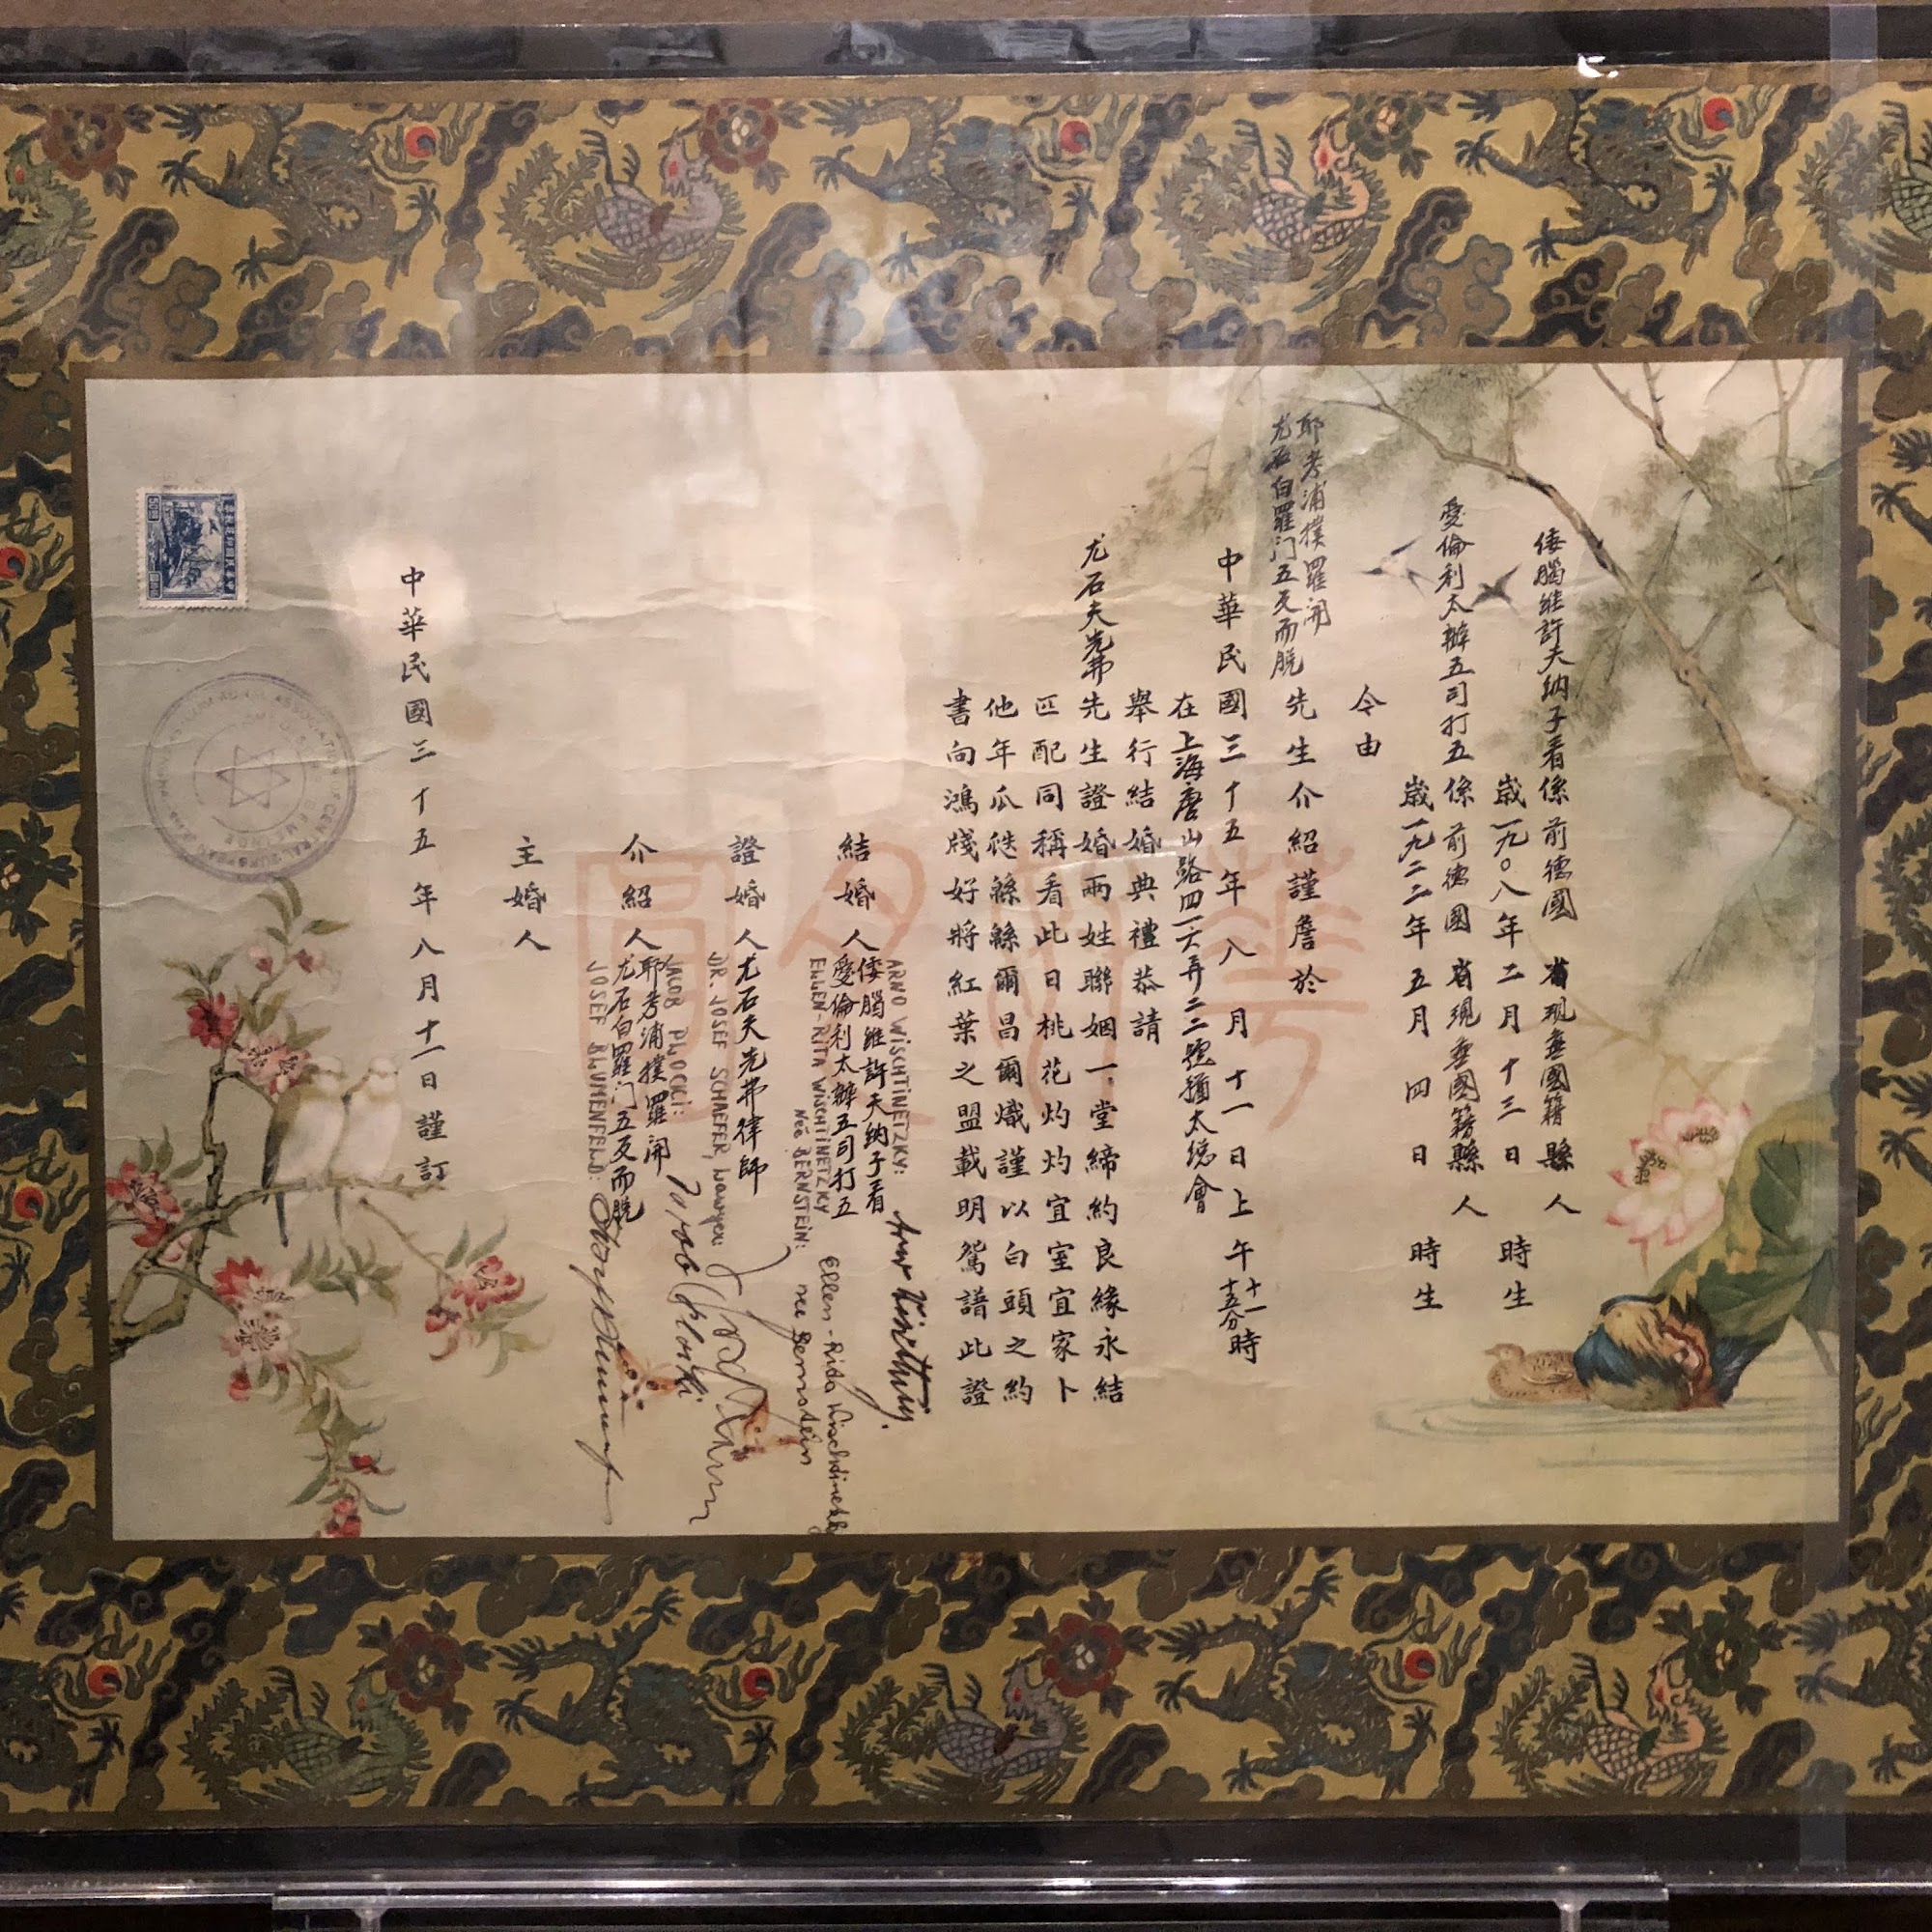 倭腦維許夫納子看係前德國 省現無國籍縣人
歲一九〇八年二月十三日 時生
愛倫利太辦五司打五係前德國 省現無國籍縣人
歲一九二二年五月四日 時生
令由
耶考浦撲羅開
尤石白羅门五反而脱
先生介紹謹詹於
中華民國三十五年八月十一日上午十一時
十五分
在上海唐山路四一六弄二二號猶太總會
舉行結婚典禮恭請
尤石夫克弗先生證婚兩姓聯姻一堂締約良緣永結
匹配同稱看此日桃花灼灼宜室宜家卜
他年瓜瓞緜緜爾昌爾熾謹以白頭之約
書向鴻牋好將紅葉之盟載明鴛譜此證
結婚人
ARNO WISCHTINETZKY:
倭腦維許夫納子看
愛倫利太辦五司打五
ELLEN-RITA WISCHTINETZKY
NÉE BERNSTEIN:
Ellen-Rita Wischtinetzky
nee Bernstein
證婚人
尤石夫克弗律師
DR. JOSEF SCHAEFER, Lawyer:
介紹人
JACOB PLOCKI:
耶考浦撲羅開
Jacob Plocki
尤石白羅门五反而脱
JOSEF BLUMENFELD:
主婚人
中華民國三十五年八月十一日謹訂
ASSOCIATION OF CENTRAL EUROPEAN